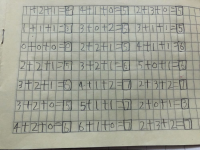 4+1+0=5 2+3+0=5
3+0+2=5 3+1+1=5
0+0+0=0 2+2+1=5 4+1+1=6
2+2+1=5 3+2+1=6 5+0+1=6
3+2+1=6 4+1+2=7
3+2+0=5 5+1+1=7 2+0+1=3
4+2+0=6 6+1+0=7 2+3+2=7